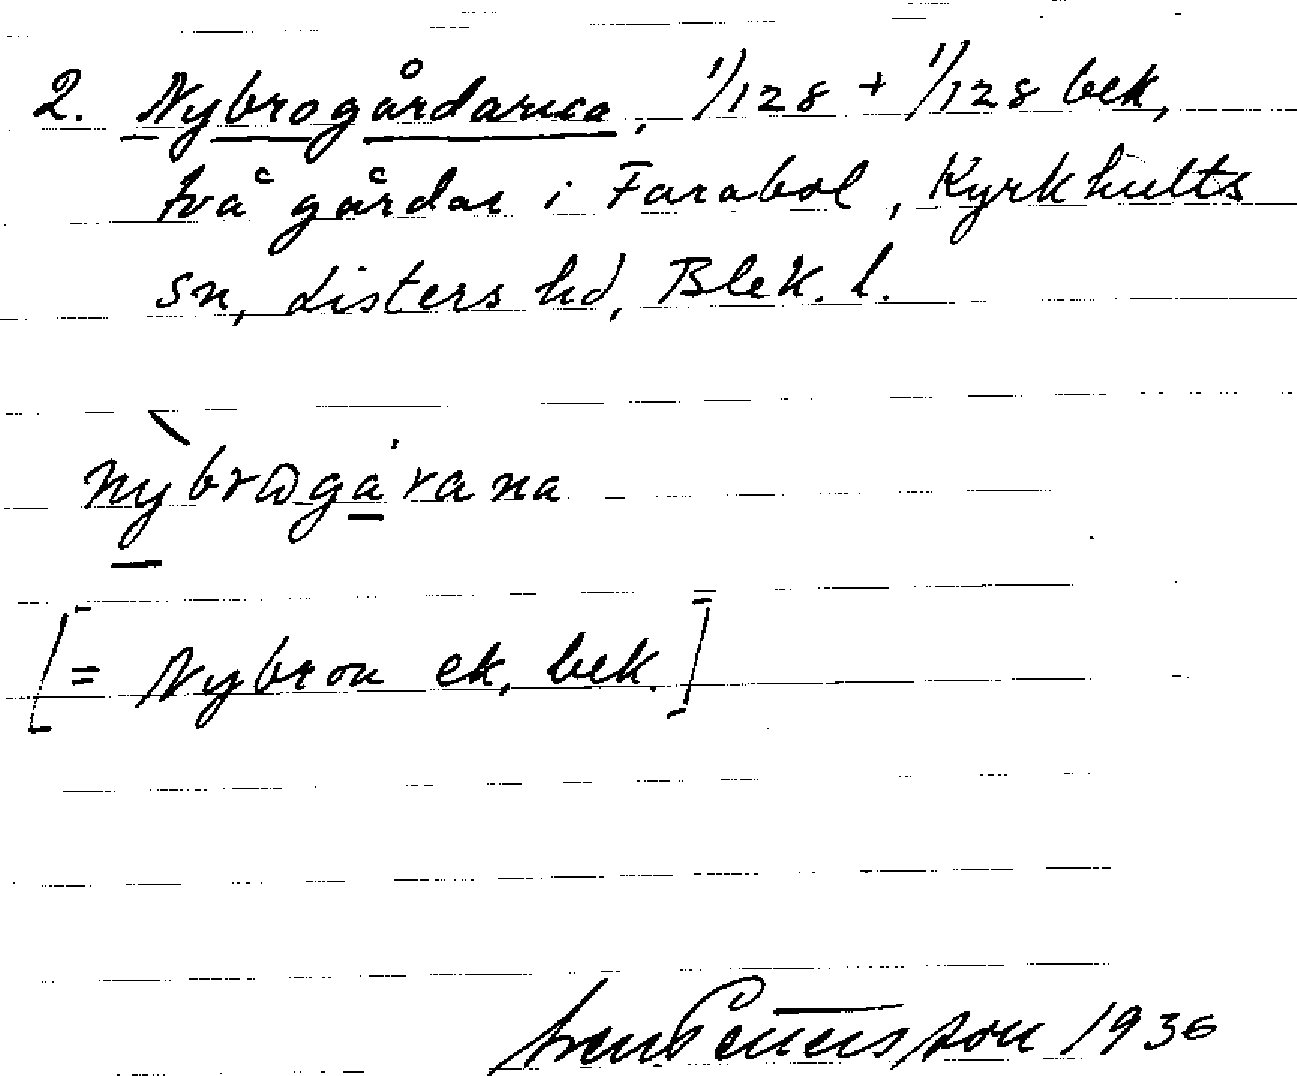 2. Nybrogårdarna, 1/128 + 1/128 bek,
två gårdar i Farabol, Kyrkhults
sn, Listers hd, Blek. l.
nỳbrωgárana
[= Nybron ek, bek.]
Sven Pettersson 1936